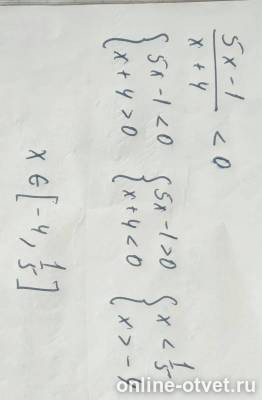 (5x-1)/(x+4) < 0
{5x-1<0 {5x-1>0 {x<1/5
{x+4>0 {x+4<0 {x>-4
x∈[-4, 1/5]
online-otvet.ru